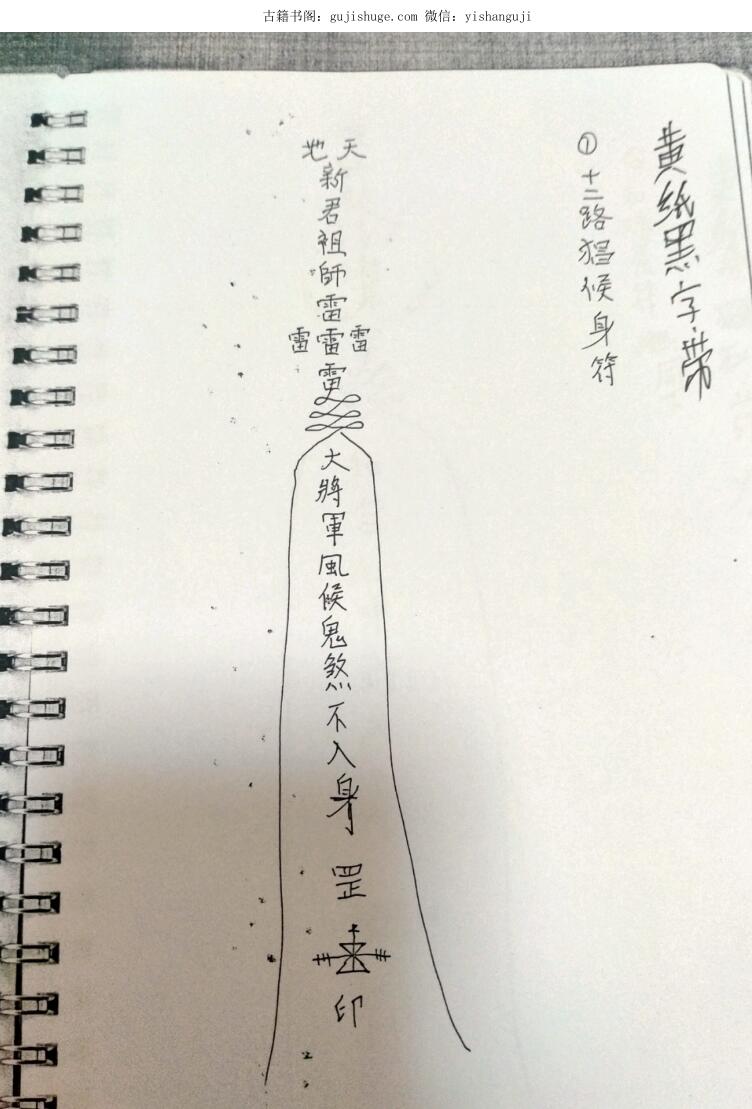 古籍书阁：gujishuge.com 微信：yishanguji
黄紙黑字带
① 十二路猖候身符
天地
新君祖師雷雷雷
雷
雷
大將軍風候鬼煞不入身 罡
印